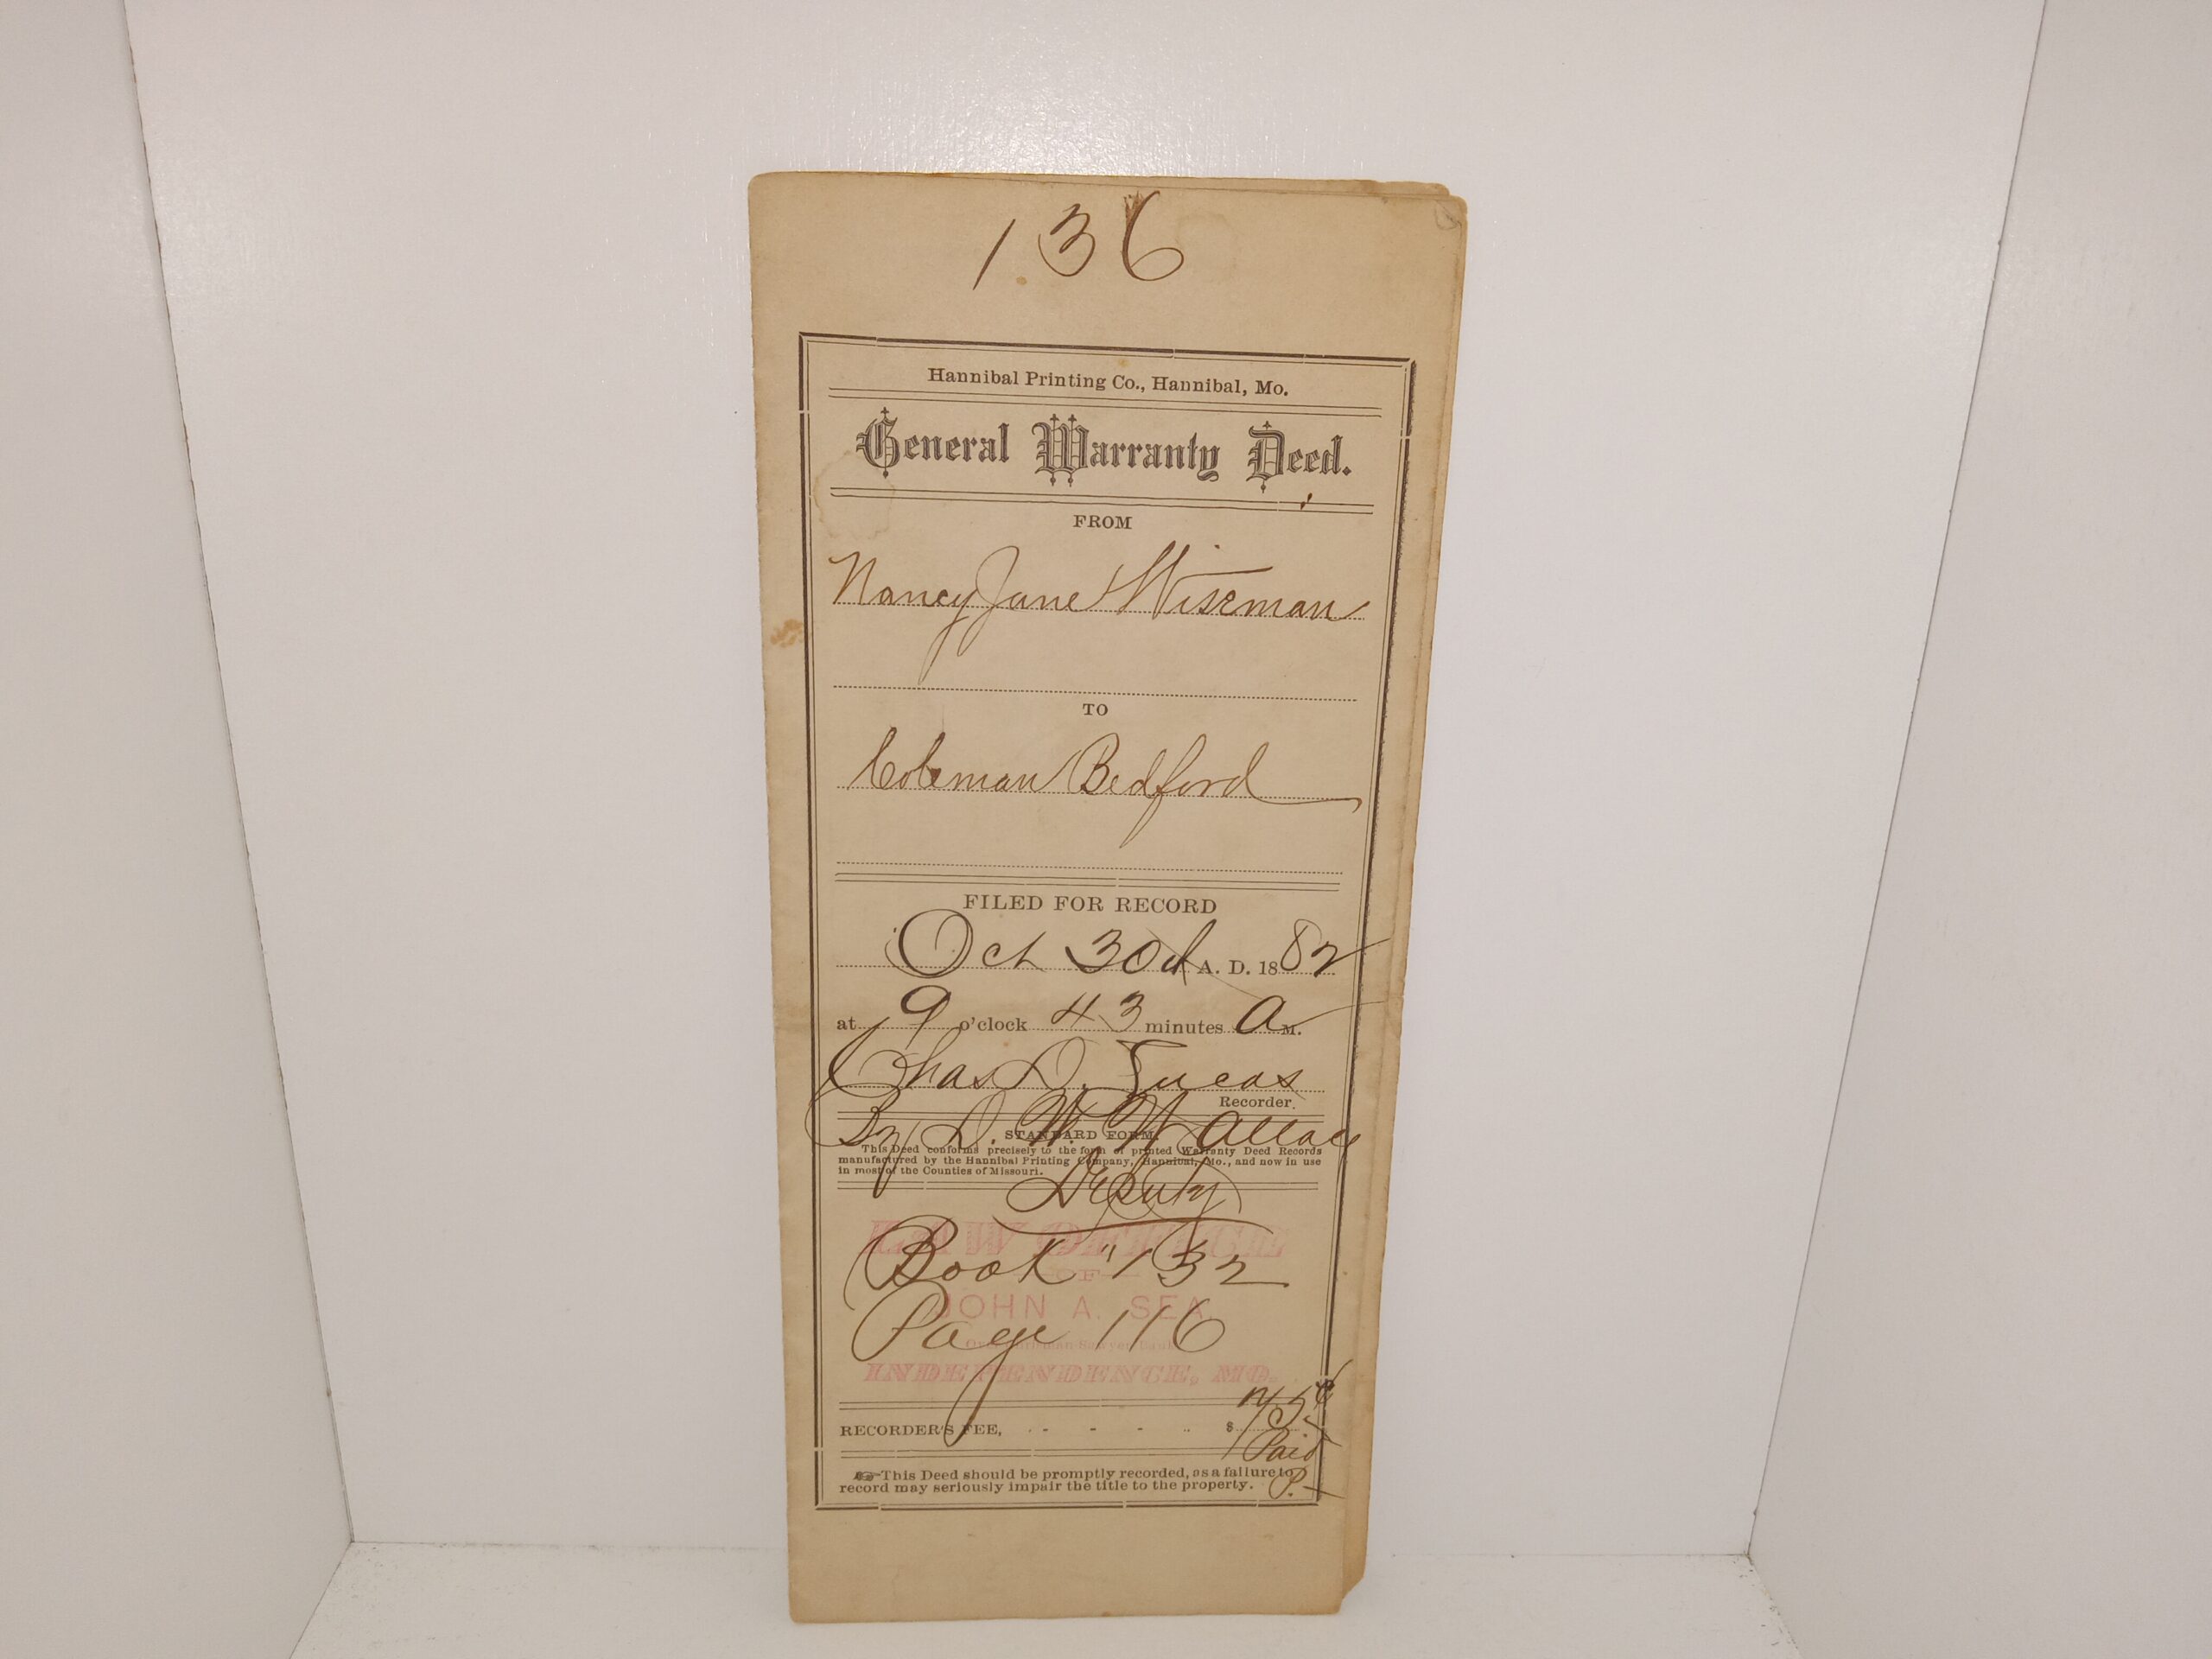 136
Hannibal Printing Co., Hannibal, Mo.
General Warranty Deed.
FROM
Nancy Jane Wiseman
TO
Coleman Bedford
FILED FOR RECORD
Oct 30th A. D. 1882
at 9 o'clock 43 minutes A M.
Chas D. Lucas
Recorder.
By D. W. Wallace
STANDARD FORM.
This Deed conforms precisely to the form of printed Warranty Deed Records
manufactured by the Hannibal Printing Company, Hannibal, Mo., and now in use
in most of the Counties of Missouri.
Deputy
LAW OFFICE
Book "132
—OF—
JOHN A. SEA,
Page 116
Over Chrisman-Sawyer Bank
INDEPENDENCE, MO.
RECORDER'S FEE, - - - - $
Paid
☞This Deed should be promptly recorded, as a failure to
record may seriously impair the title to the property.
P.